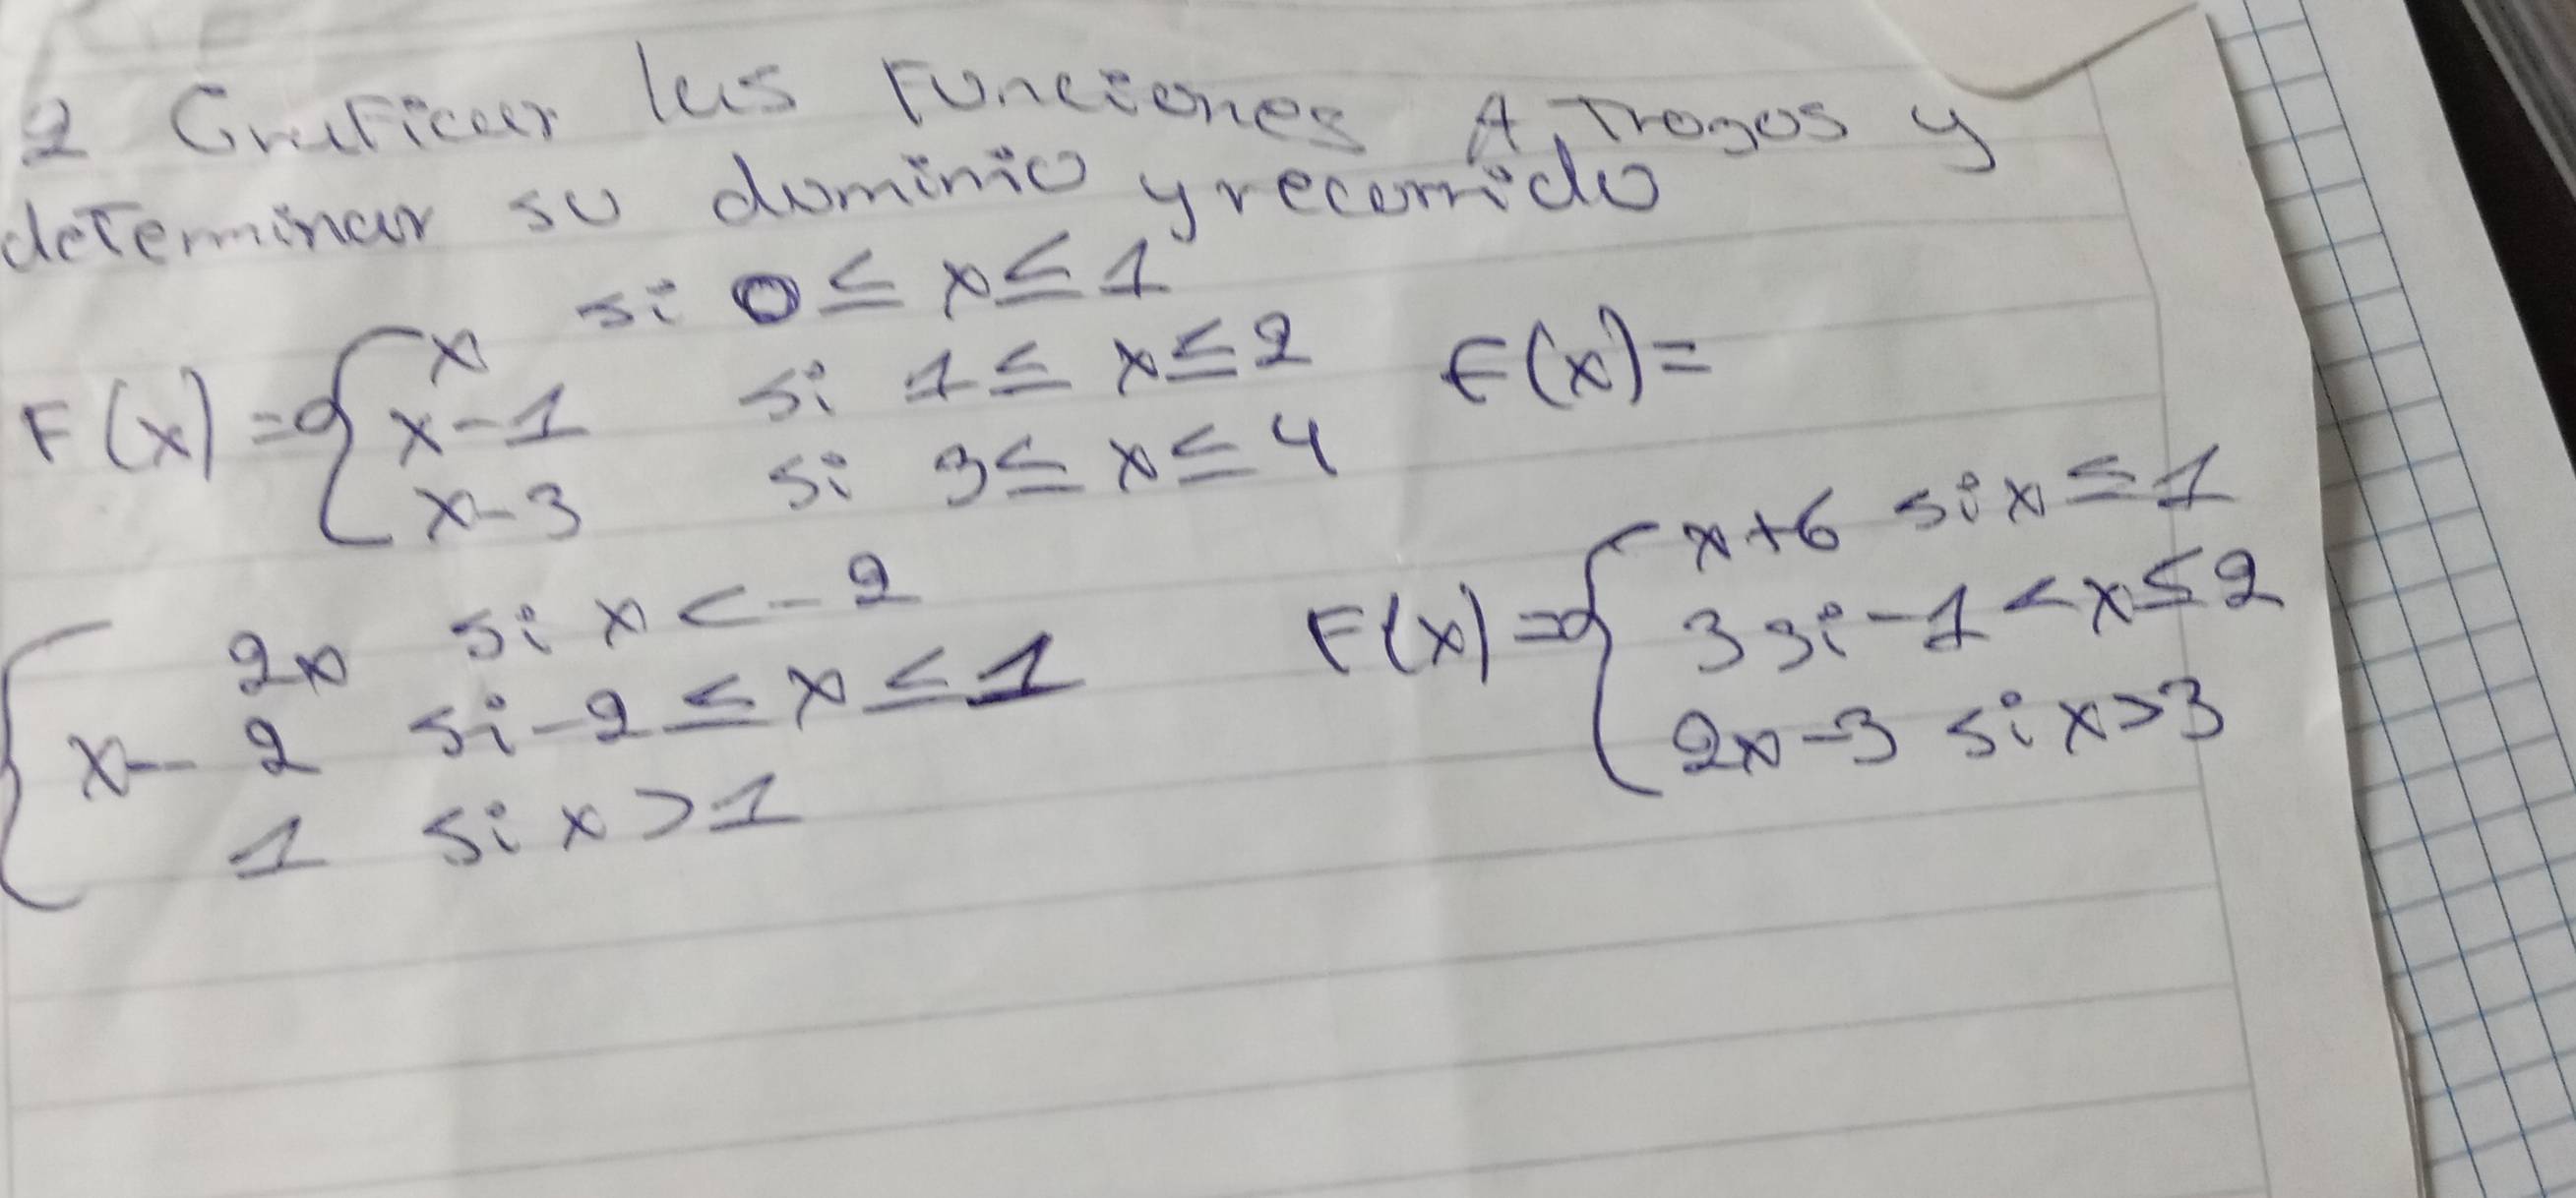 2 Graficar las Funciones A Trozos y
determinar su dominio y recorrido
F(x) = { x si 0 ≤ x ≤ 1
x-1 si 1 ≤ x ≤ 2
x-3 si 3 ≤ x ≤ 4
F(x) =
{ 2x si x < -2
x-2 si -2 ≤ x ≤ 1
1 si x > 1
F(x) = { x+6 si x ≤ 1
3 si -1 < x ≤ 2
2x-3 si x > 3